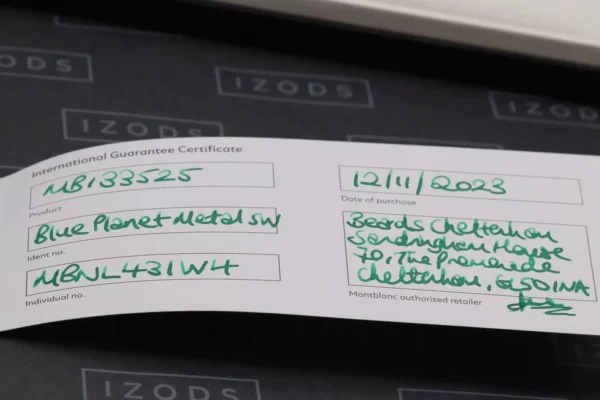 IZODS
IZODS
IZODS
IZODS
International Guarantee Certificate
MB133525
Product
Blue Planet Metal SW
Ident no.
MBNL431W4
Individual no.
12/11/2023
Date of purchase
Beards Cheltenham
Sandringham House
70, The Promenade
Cheltenham, GL501NA
Montblanc authorised retailer
IZODS